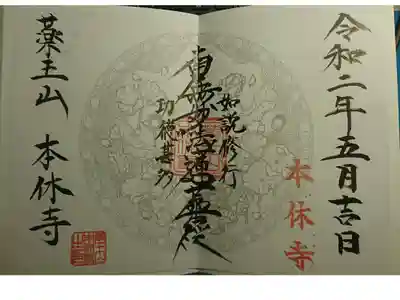 令和二年五月吉日
本休寺
如説修行
南無妙法蓮華経
功徳甚多
薬王山 本休寺